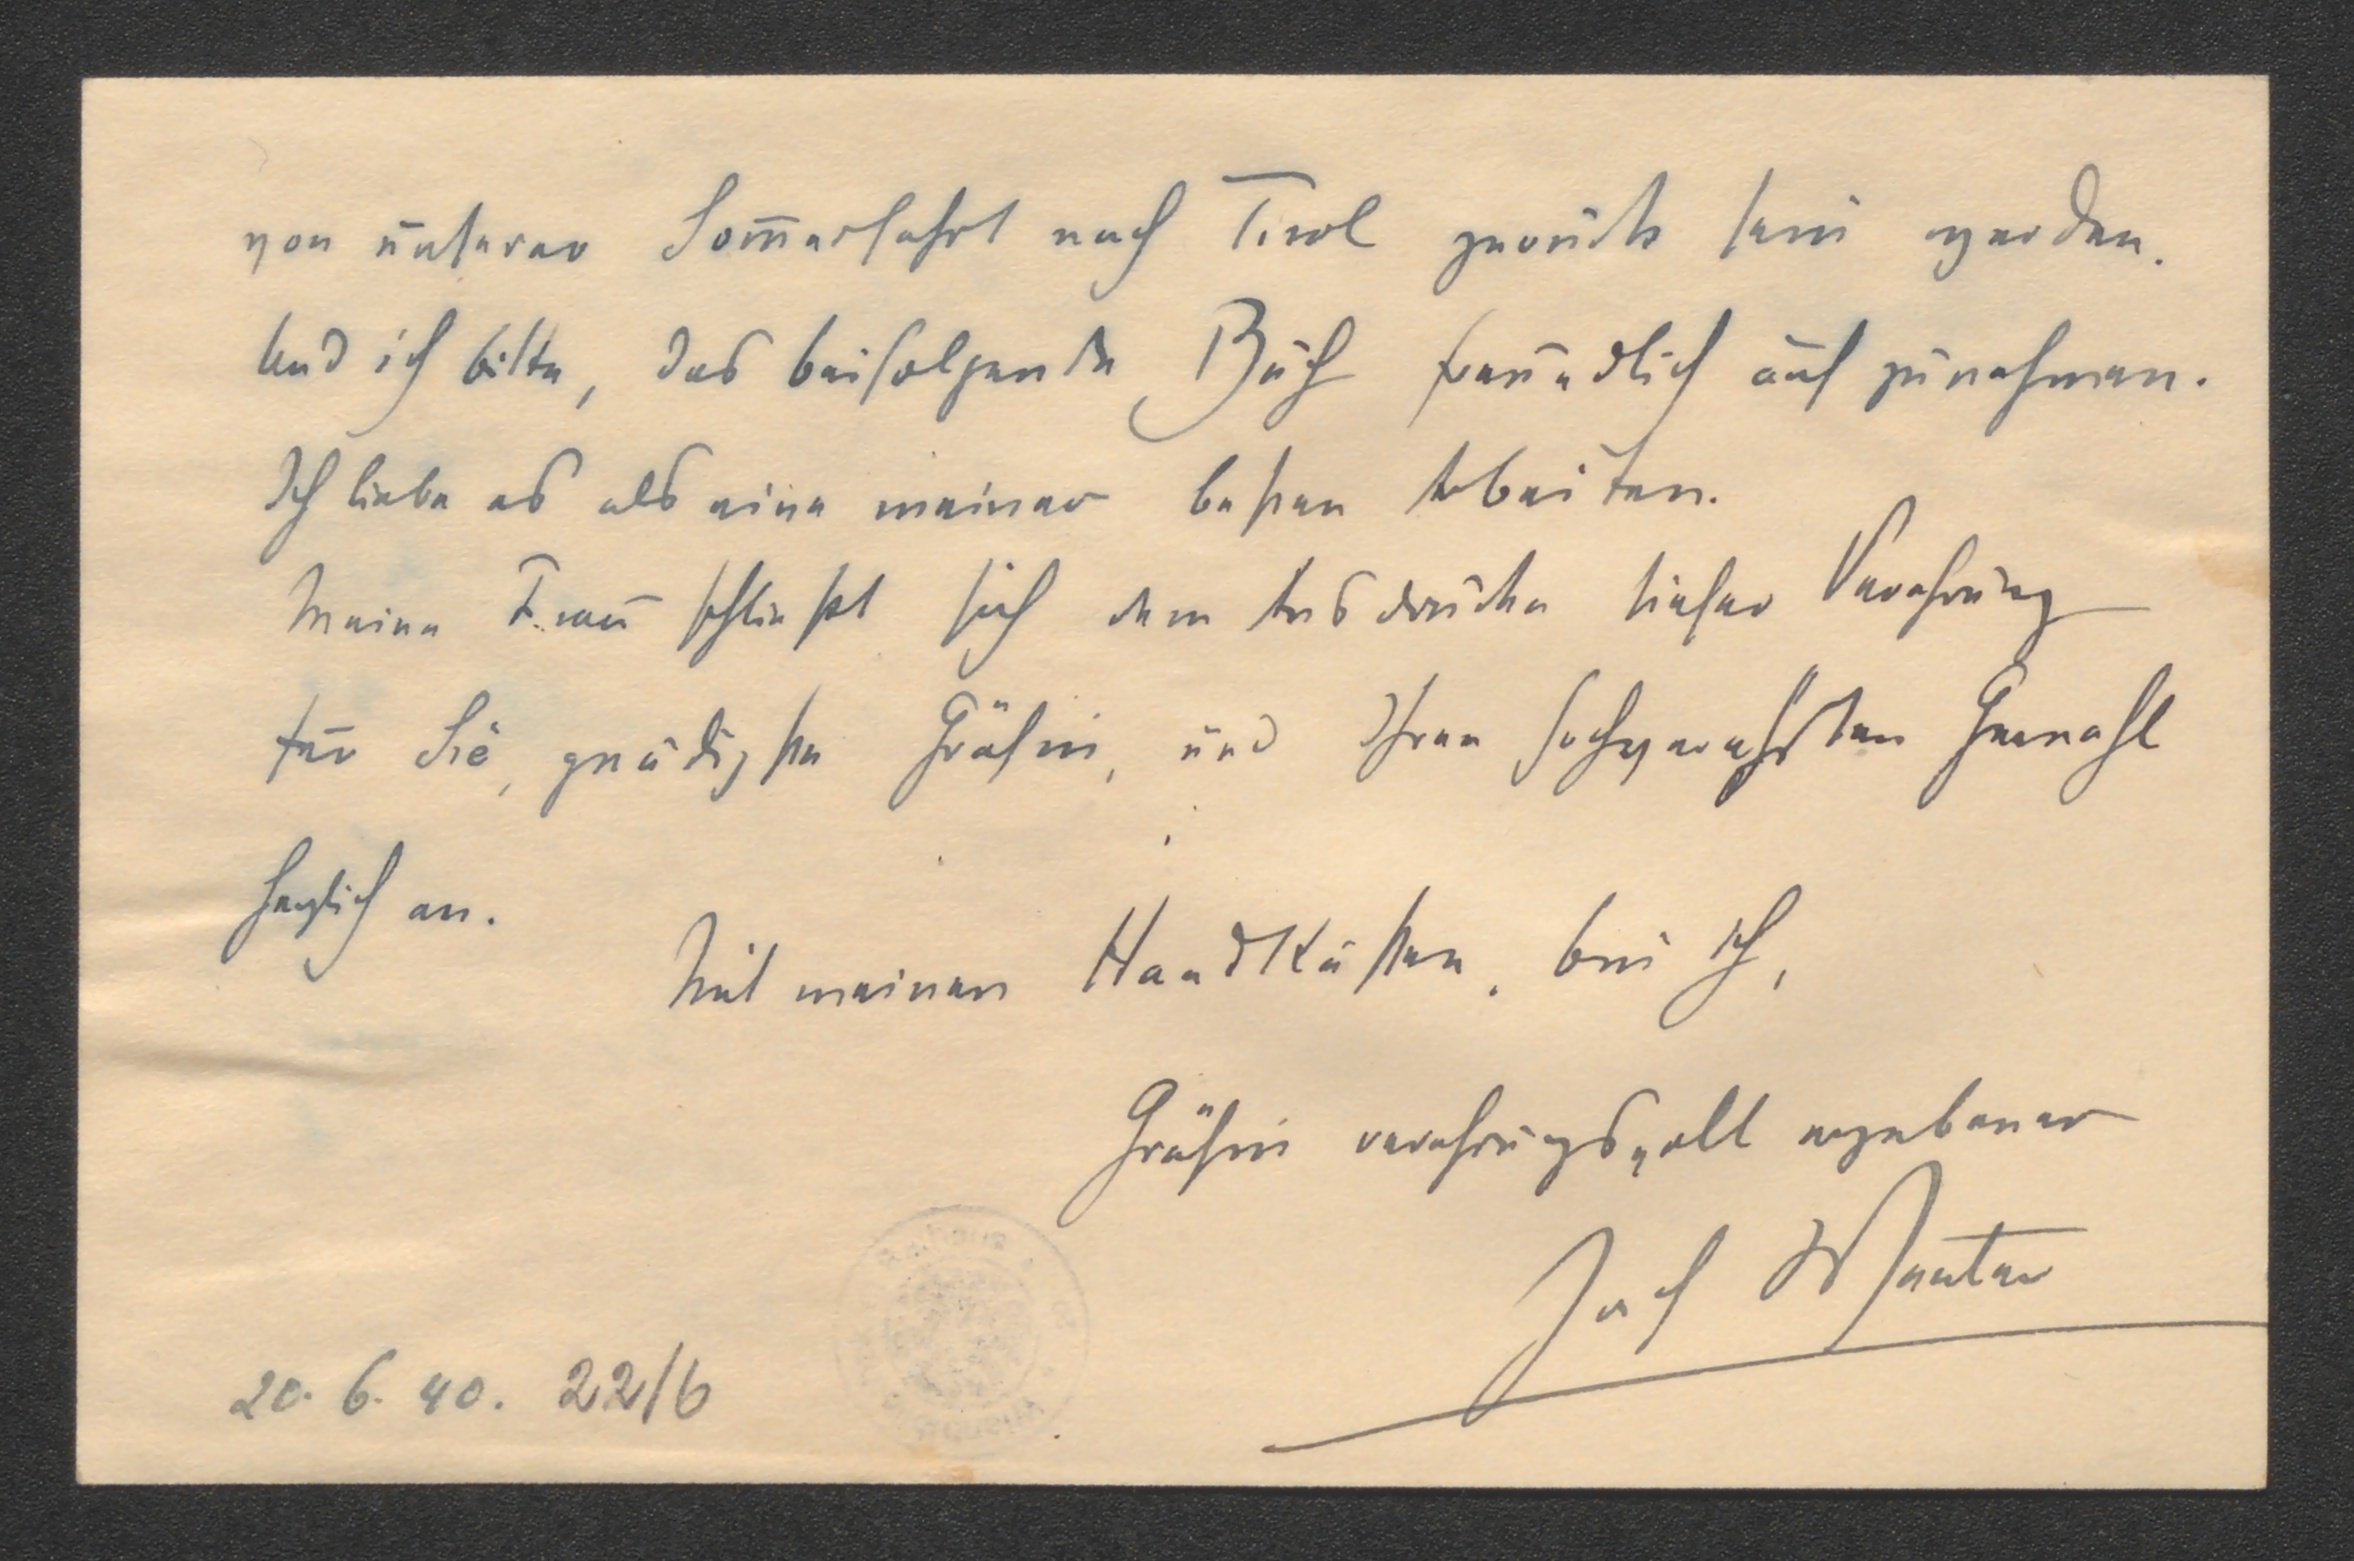 von unserer Som̅erfahrt nach Tirol zurück sein werden.
Und ich bitte, das beifolgende Buch freundlich auf zunehmen.
Ich liebe es als eine meiner besten Arbeiten.
Meine Frau schließt sich dem Ausdrucke tiefer Verehrung
für Sie, gnädigste Gräfin, und Ihren hochverehrten Gemahl
herzlich an.
Mit meinen Handküssen, bin ich,
Gräfin verehrungsvoll ergebener
20. 6. 40. 22/6